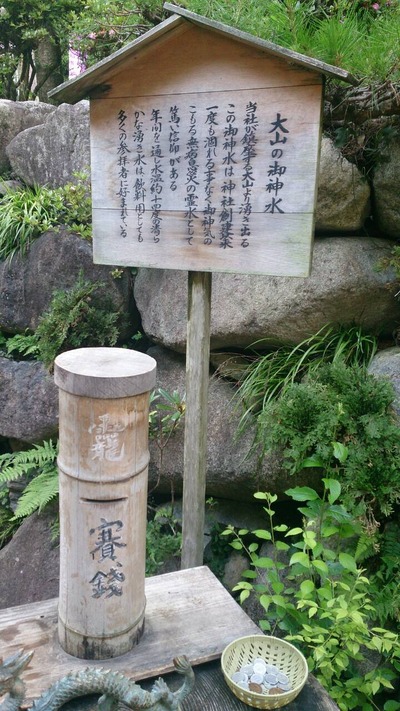 大山の御神水
当社が鎮座する大山より湧き出る
この御神水は神社創建以来
一度も涸れる事なく御神気の
こもる無病息災の霊水として
篤い信仰がある
年間を通し水温約十四度の清ら
かな湧き水は飲料用としても
多くの参拝者に甘まれている
龍
賽銭